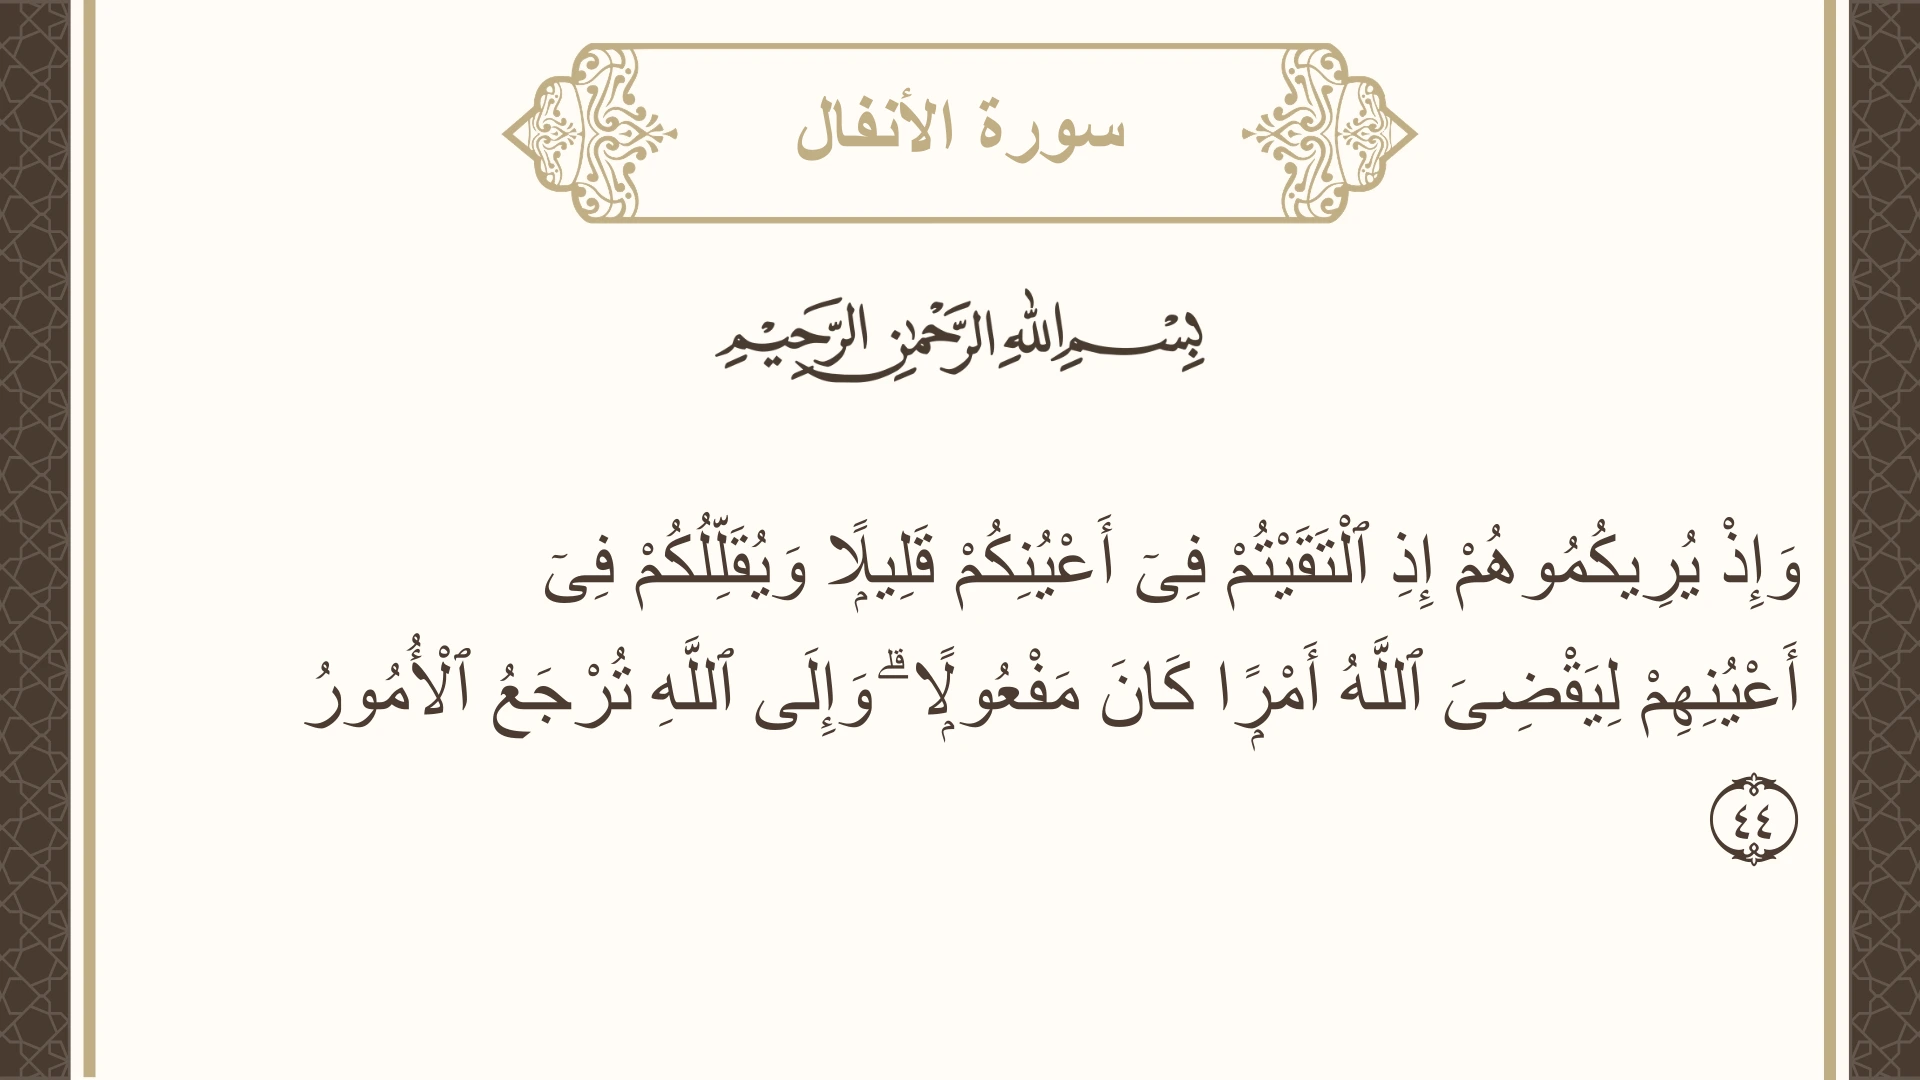 سورة الأنفال
بِسْمِ اللهِ الرَّحْمٰنِ الرَّحِيْمِ
وَإِذْ يُرِيكُمُوهُمْ إِذِ ٱلْتَقَيْتُمْ فِىٓ أَعْيُنِكُمْ قَلِيلًۭا وَيُقَلِّلُكُمْ فِىٓ
أَعْيُنِهِمْ لِيَقْضِىَ ٱللَّهُ أَمْرًۭا كَانَ مَفْعُولًۭا ۗ وَإِلَى ٱللَّهِ تُرْجَعُ ٱلْأُمُورُ
٤٤